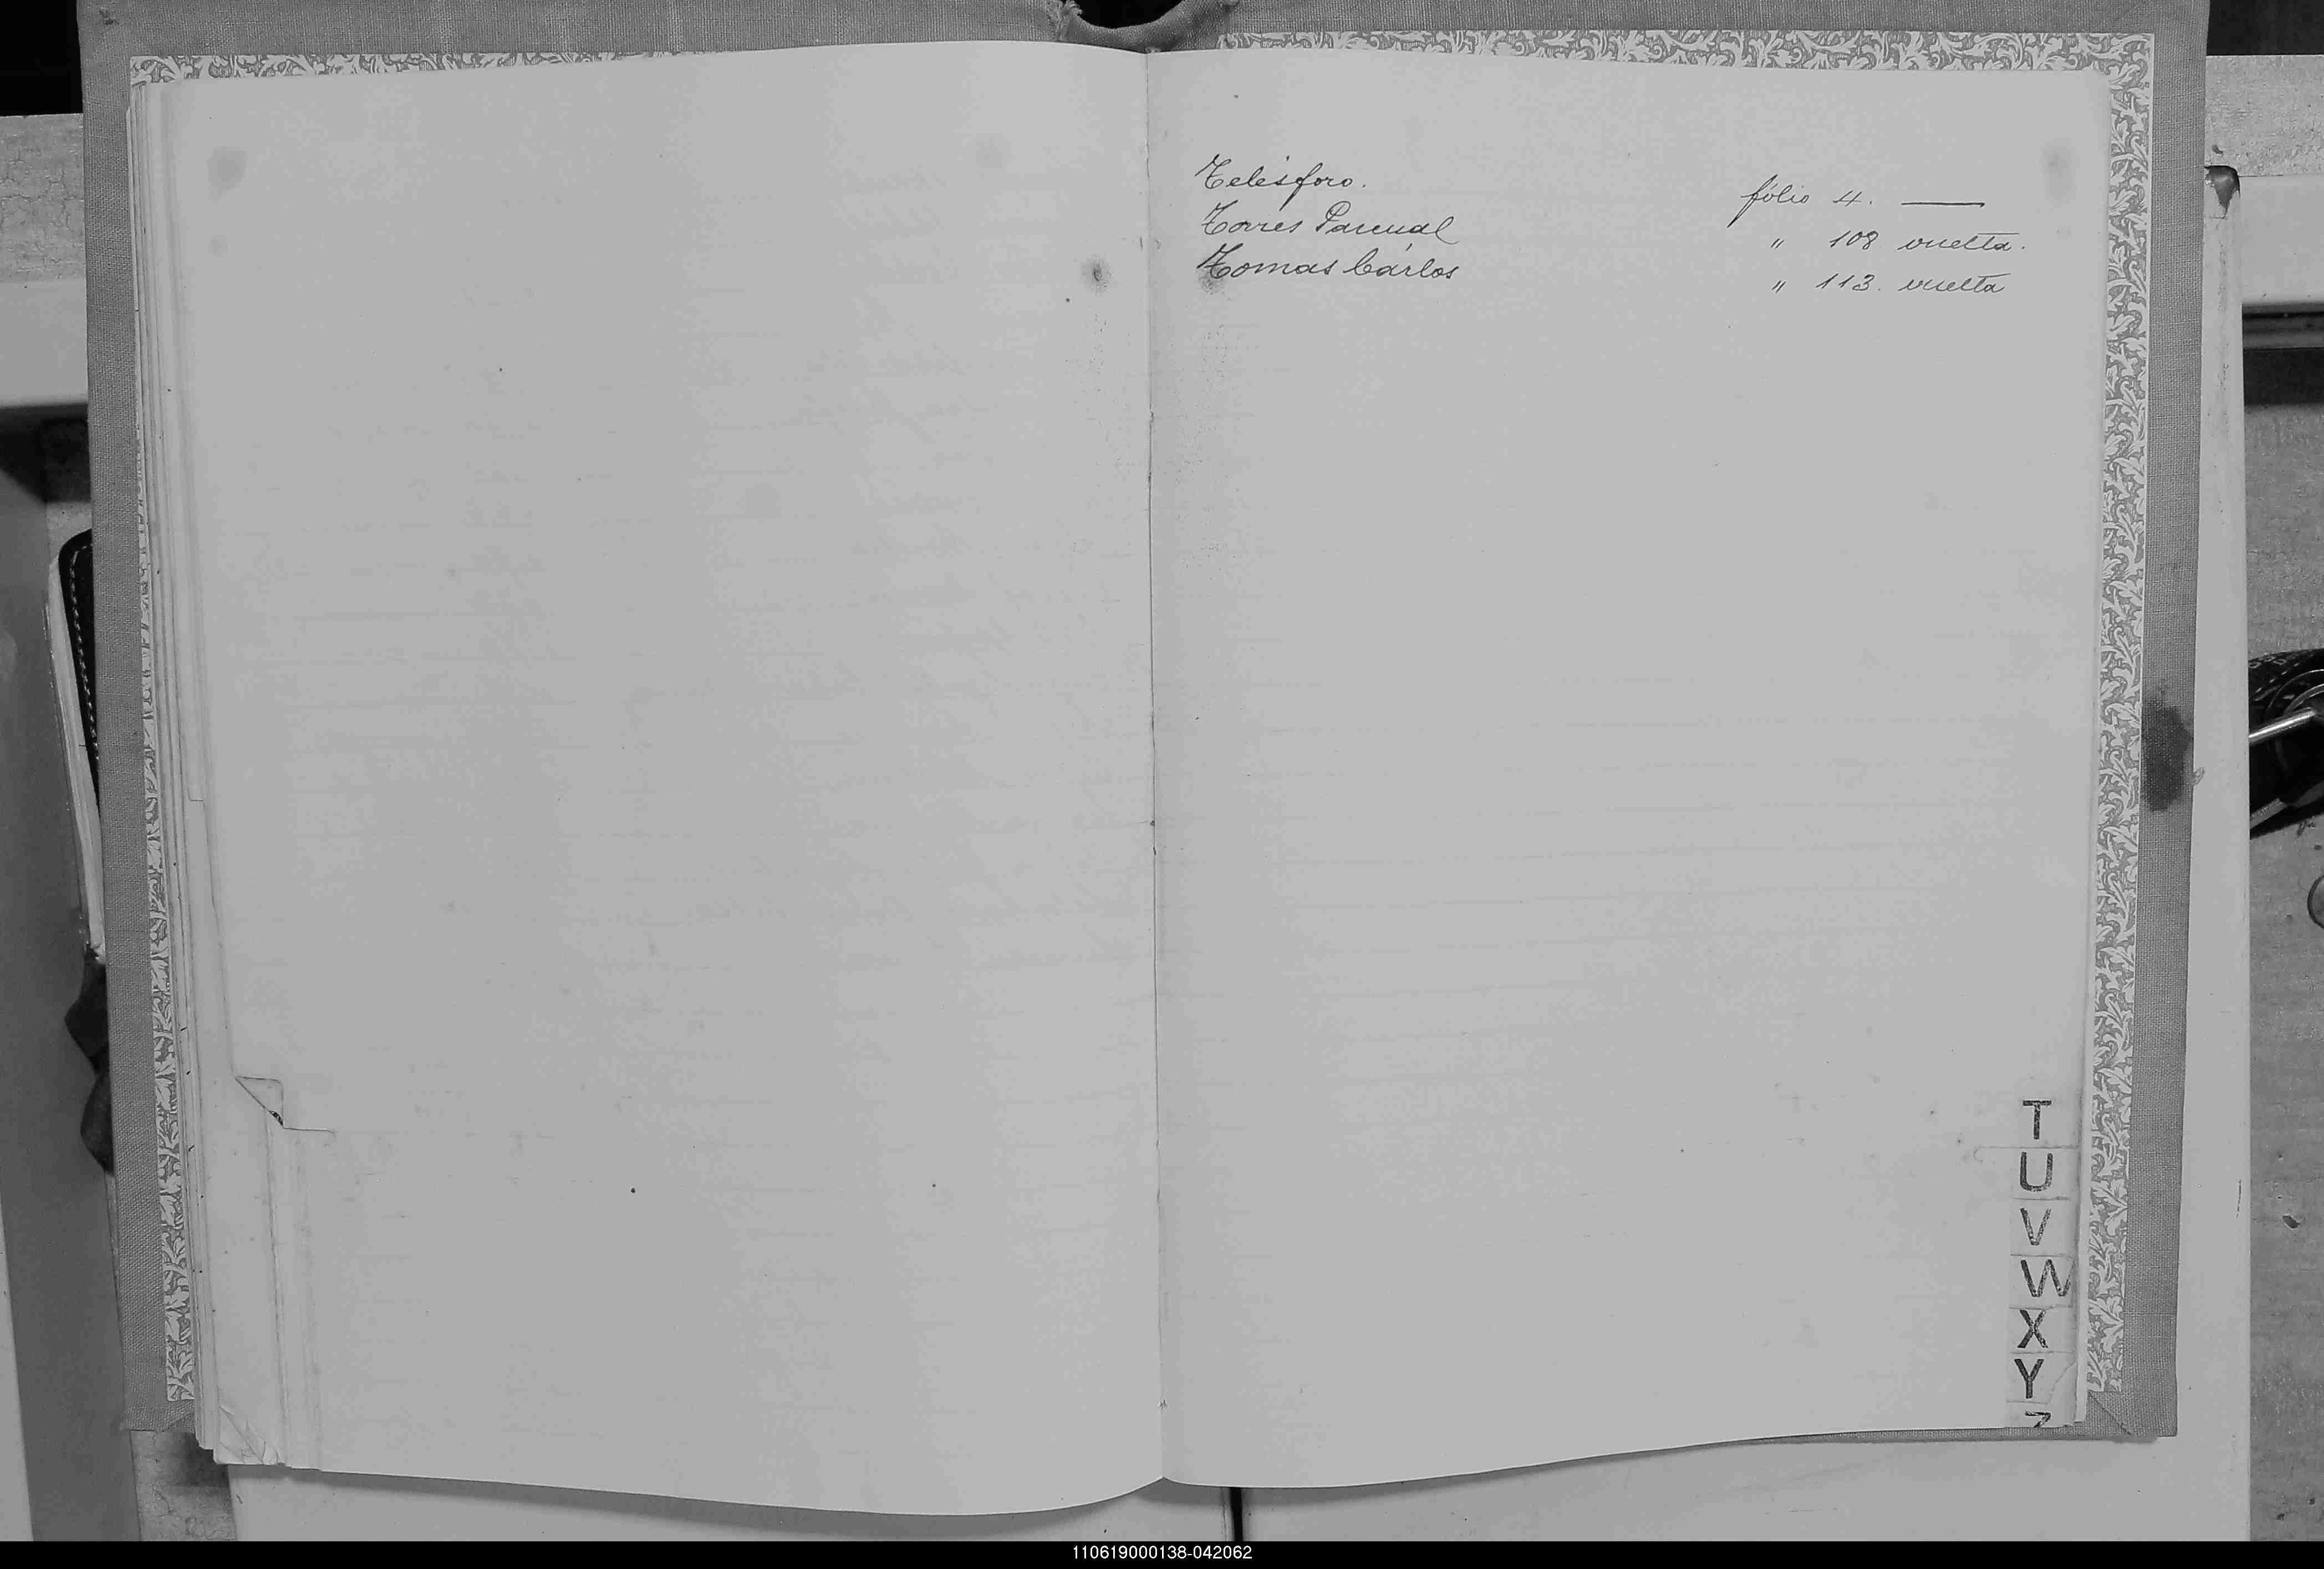 Telésforo. fólio 4. —
Torres Pascual " 108 vuelta.
Tomas Cárlos " 113. vuelta
T
U
V
W
X
Y
Z
110619000138-042062